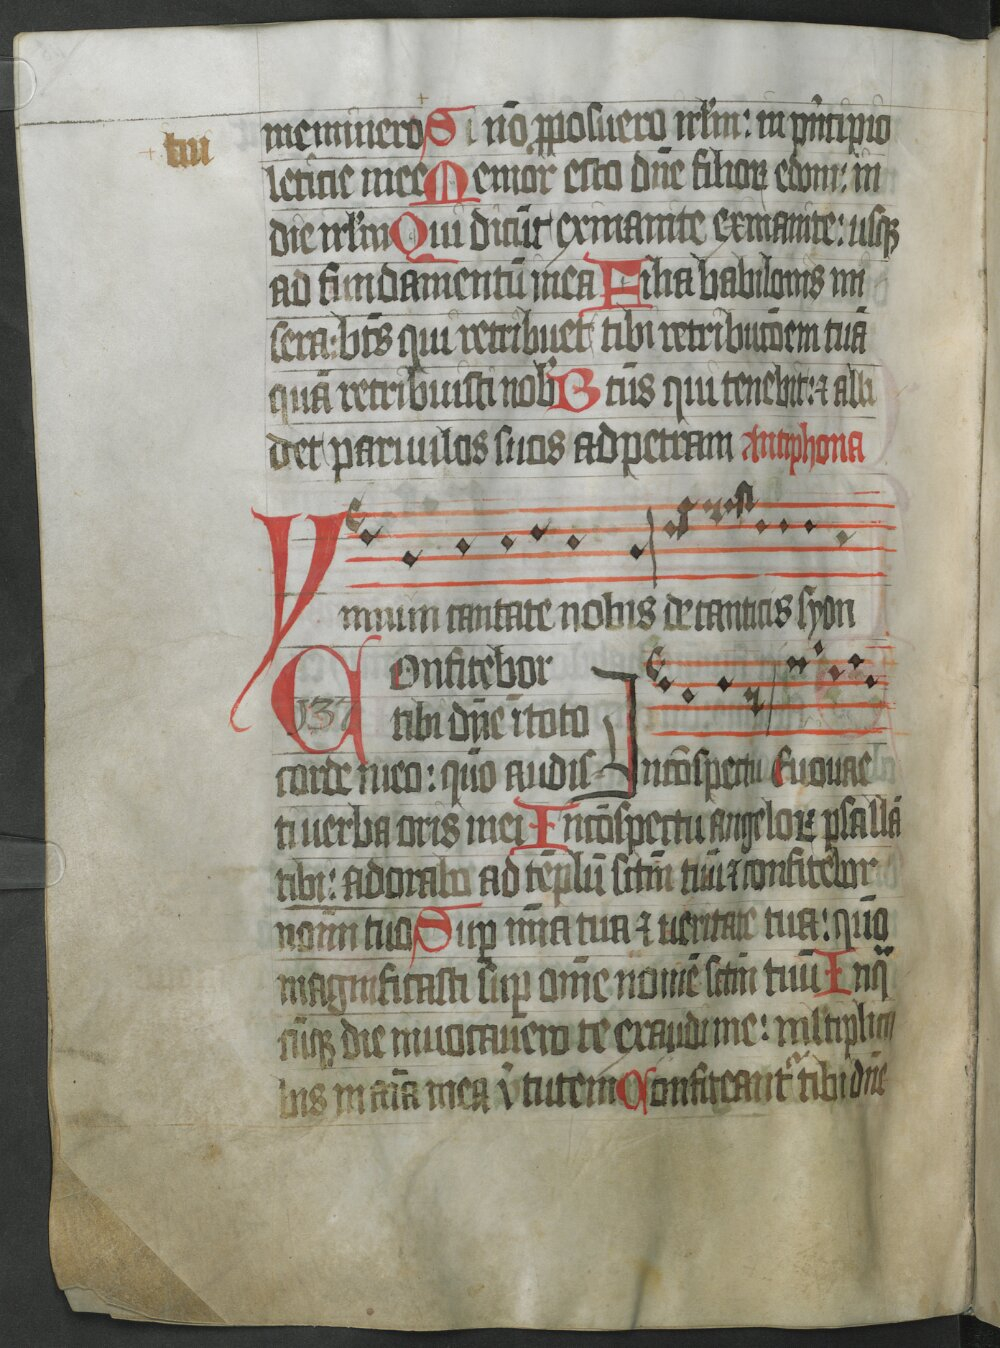 tui
meminero Si nō ꝓposuero irl̄m: in pͥncipio
leticie mee Memor esto dn̄e filioꝝ edom: in
die irl̄m Qui dicūt exinanite exinanite: usqꝫ
ad fundamentū in ea Filia babilonis mi
sera: bt̄s qui retribuet tibi retribucōem tuā
quā retribuisti nob̄ Btūs qui tenebit: ⁊ alli
det paruulos suos ad petram Antiphona
Ymnum cantate nobis de canticis syon
Confitebor
137
tibi dn̄e ī toto
corde meo: qm̄o audis-
In cōspectu Euouae
ti uerba oris mei In cōspectu angeloꝝ psallā
tibi: adorabo ad tēplū sctm̄ tuū ⁊ confitebor
nomī tuo Suꝑ mīa tua ⁊ ueritate tua: qm̄o
magnificasti suꝑ om̄e nomē sctm̄ tuū In q̄
cūqꝫ die inuocauero te exaudi me: m̄ltiplica
bis in aīa mea v̄tutem Confiteant᷑ tibi dn̄e